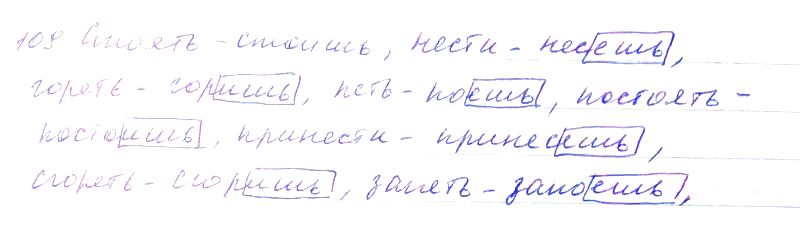 109 Стоять - стоишь, нести - несешь,
гореть - горишь, петь - поешь, постоять -
постоишь, принести - принесешь,
сгореть - сгоришь, запеть - запоешь,